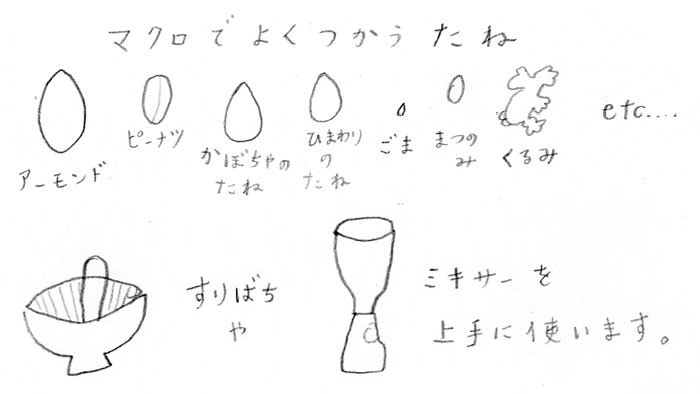 マクロでよくつかうたね
アーモンド
ピーナツ
かぼちゃの
たね
ひまわり
の
たね
ごま
まつの
み
くるみ
etc....
すりばち
や
ミキサーを
上手に使います。